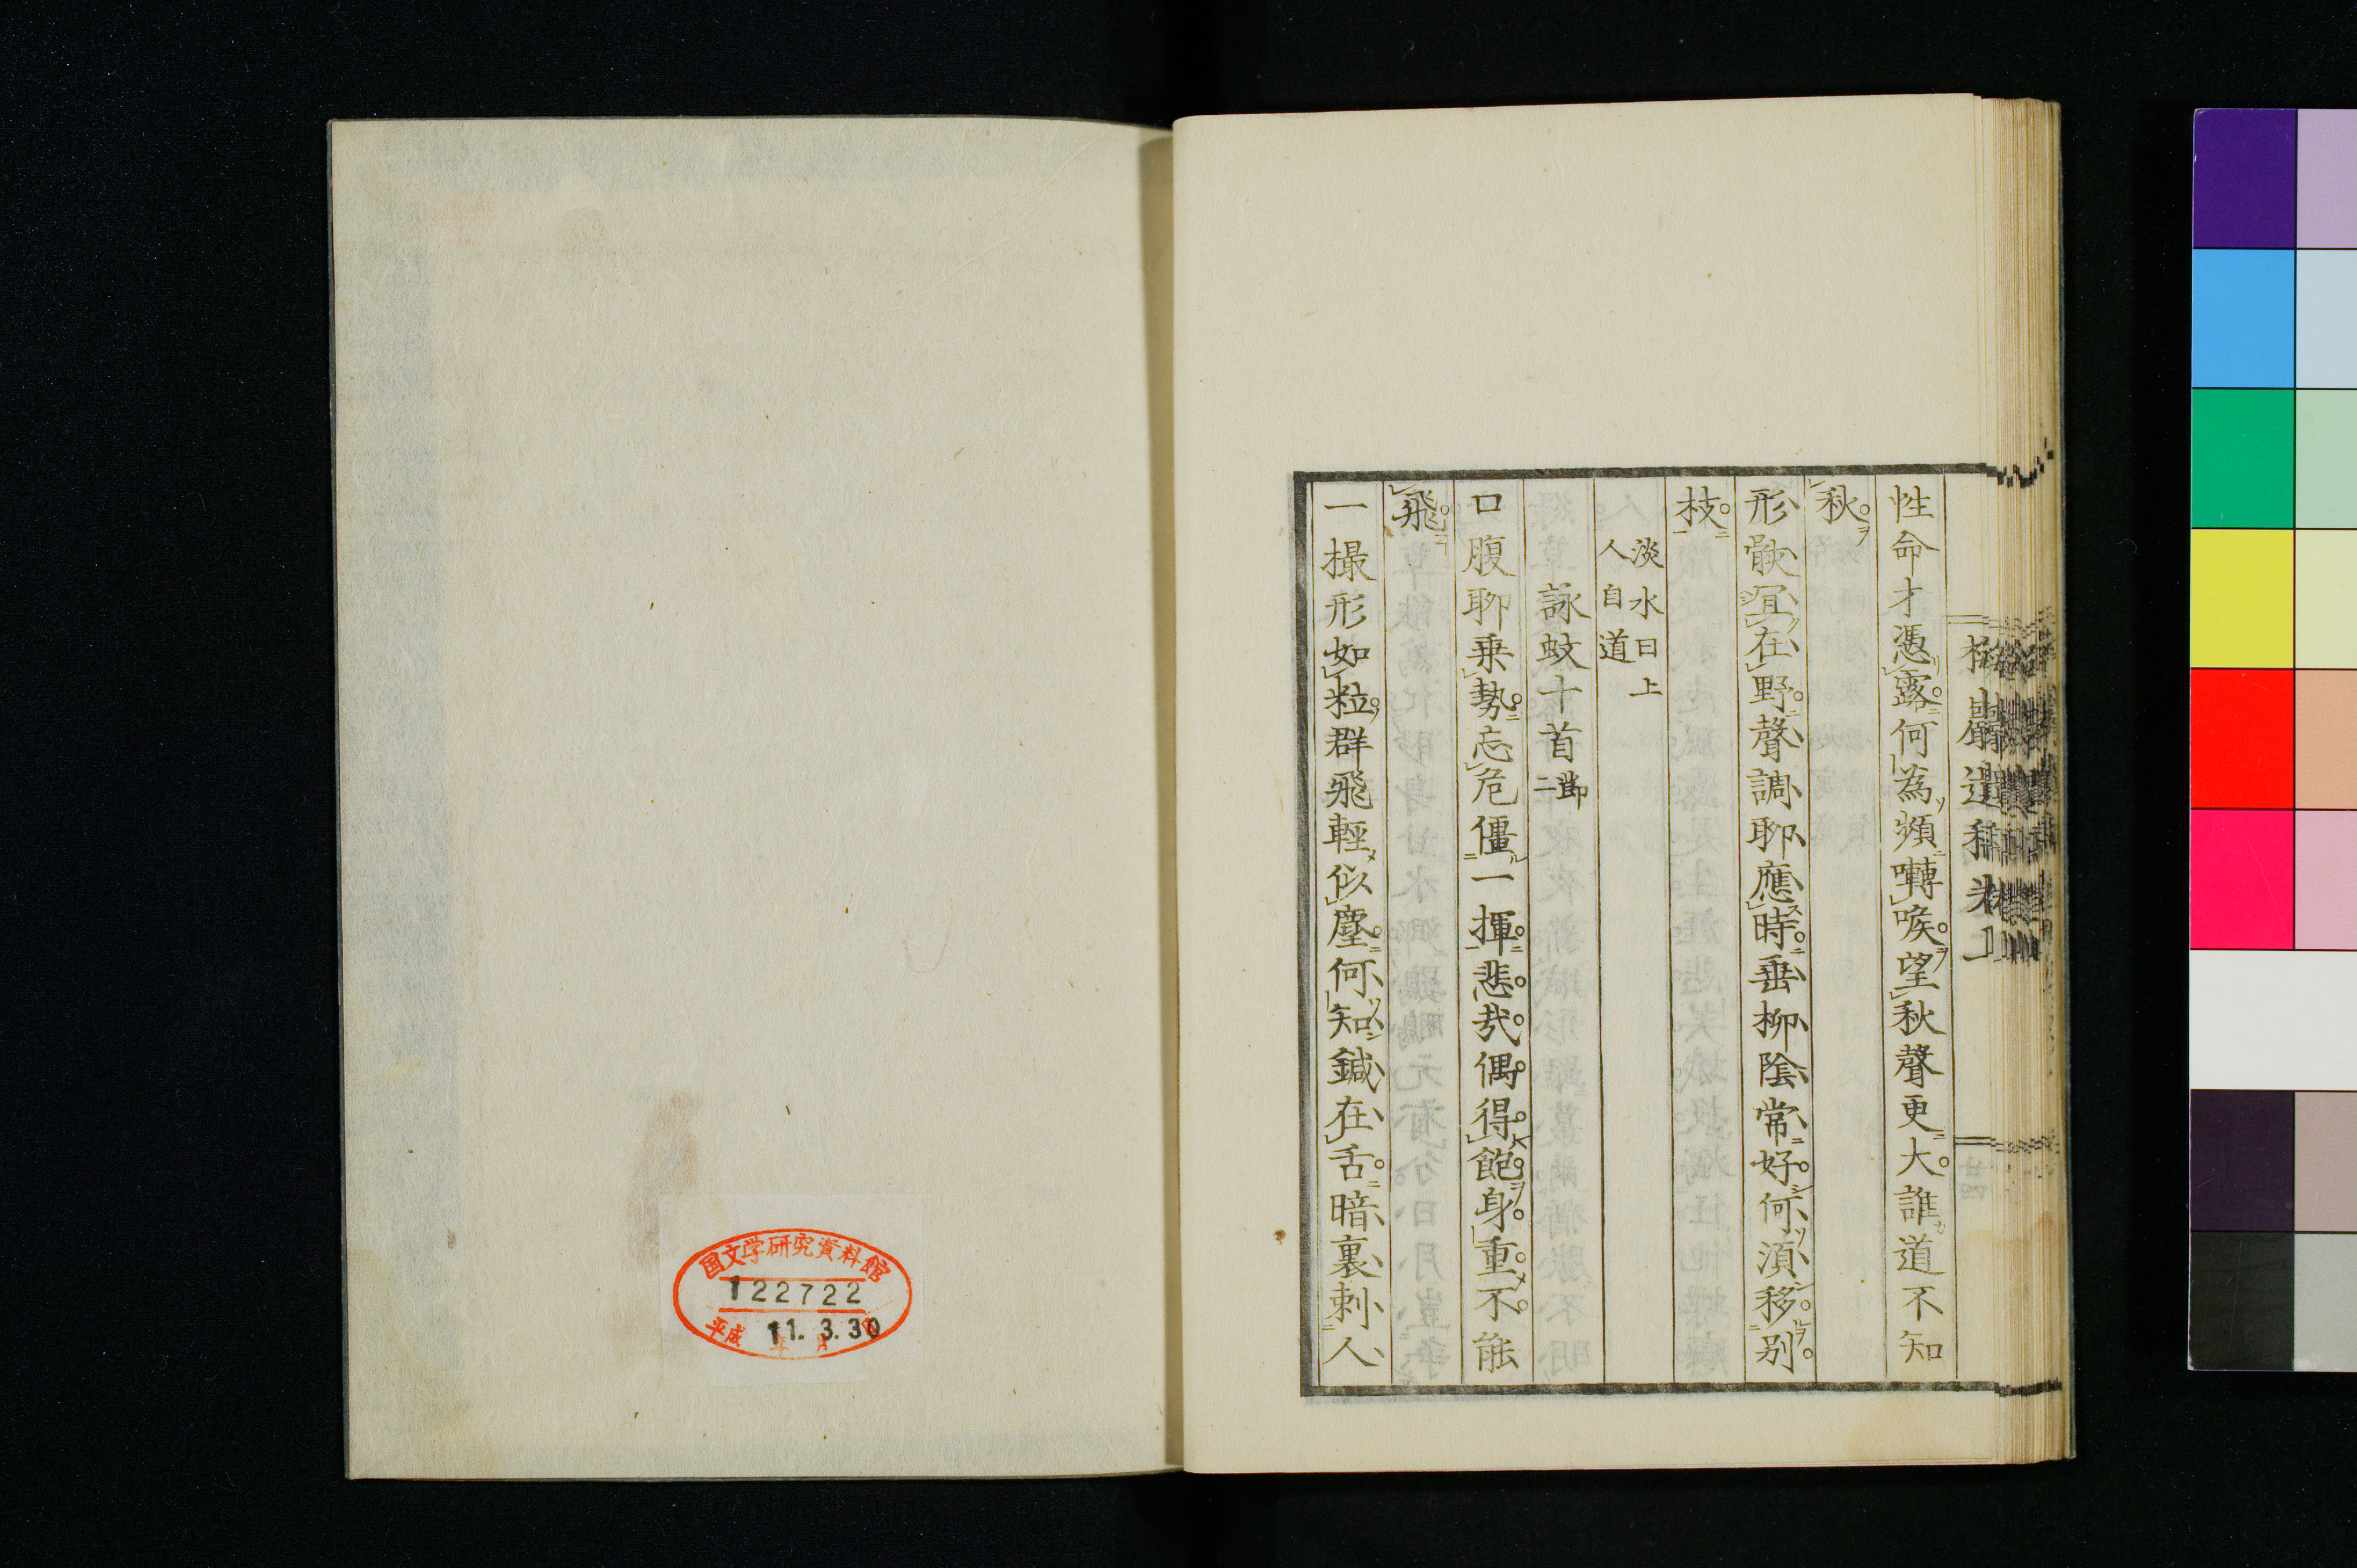 性命才憑露何為頻囀喉望秋聲更大誰道不知
秋
形骸冝在野聲調聊應時垂柳陰常好何須移別
枝
淡水曰上
人自道
詠蚊十首節二
口腹聊乗勢忘危僵一揮悲哉偶得飽身重不能
飛
一撮形如粒群飛輕似塵何知鍼在舌暗裏刺人
国文学研究資料館
122722
平成 11.3.30